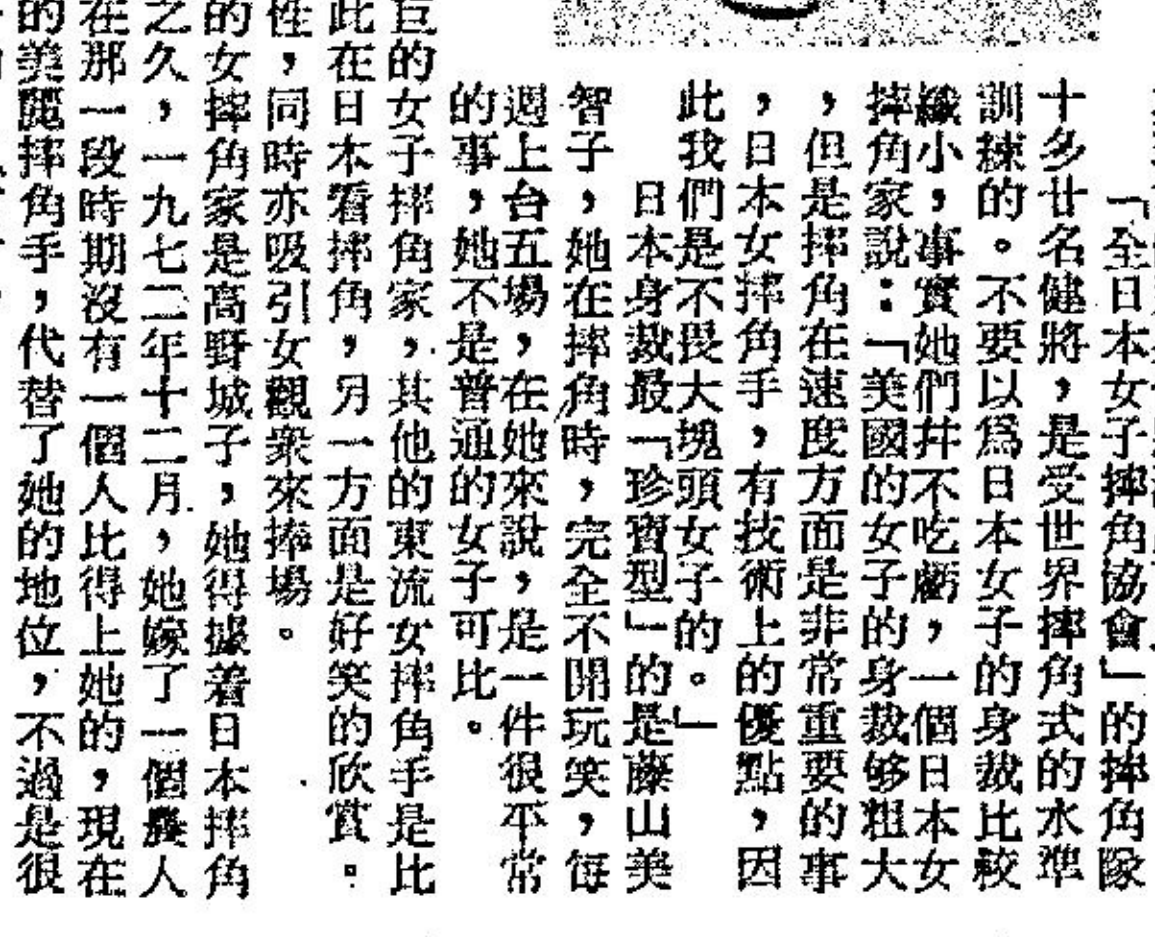 「全日本女子摔角協會」的摔角隊
十多廿名健將，是受世界摔角式的水準
訓練的。不要以爲日本女子的身裁比較
纖小，事實她們並不吃虧，一個日本女
摔角家說：「美國的女子的身裁够粗大
，但是摔角在速度方面是非常重要的事
，日本女摔角手，有技術上的優點，因
此我們是不畏大塊頭女子的。」
日本身裁最「珍寶型」的是藤山美
智子，她在摔角時，完全不開玩笑，每
週上台五場，在她來說，是一件很平常
的事，她不是普通的女子可比。
巨的女子摔角家，其他的東流女摔角手是比
此在日本看摔角，另一方面是好笑的欣賞。
性，同時亦吸引女觀衆來捧場。
的女摔角家是高野城子，她得據着日本摔角
之久，一九七二年十二月，她嫁了一個農人
在那一段時期沒有一個人比得上她的，現在
的美麗摔角手，代替了她的地位，不過是很